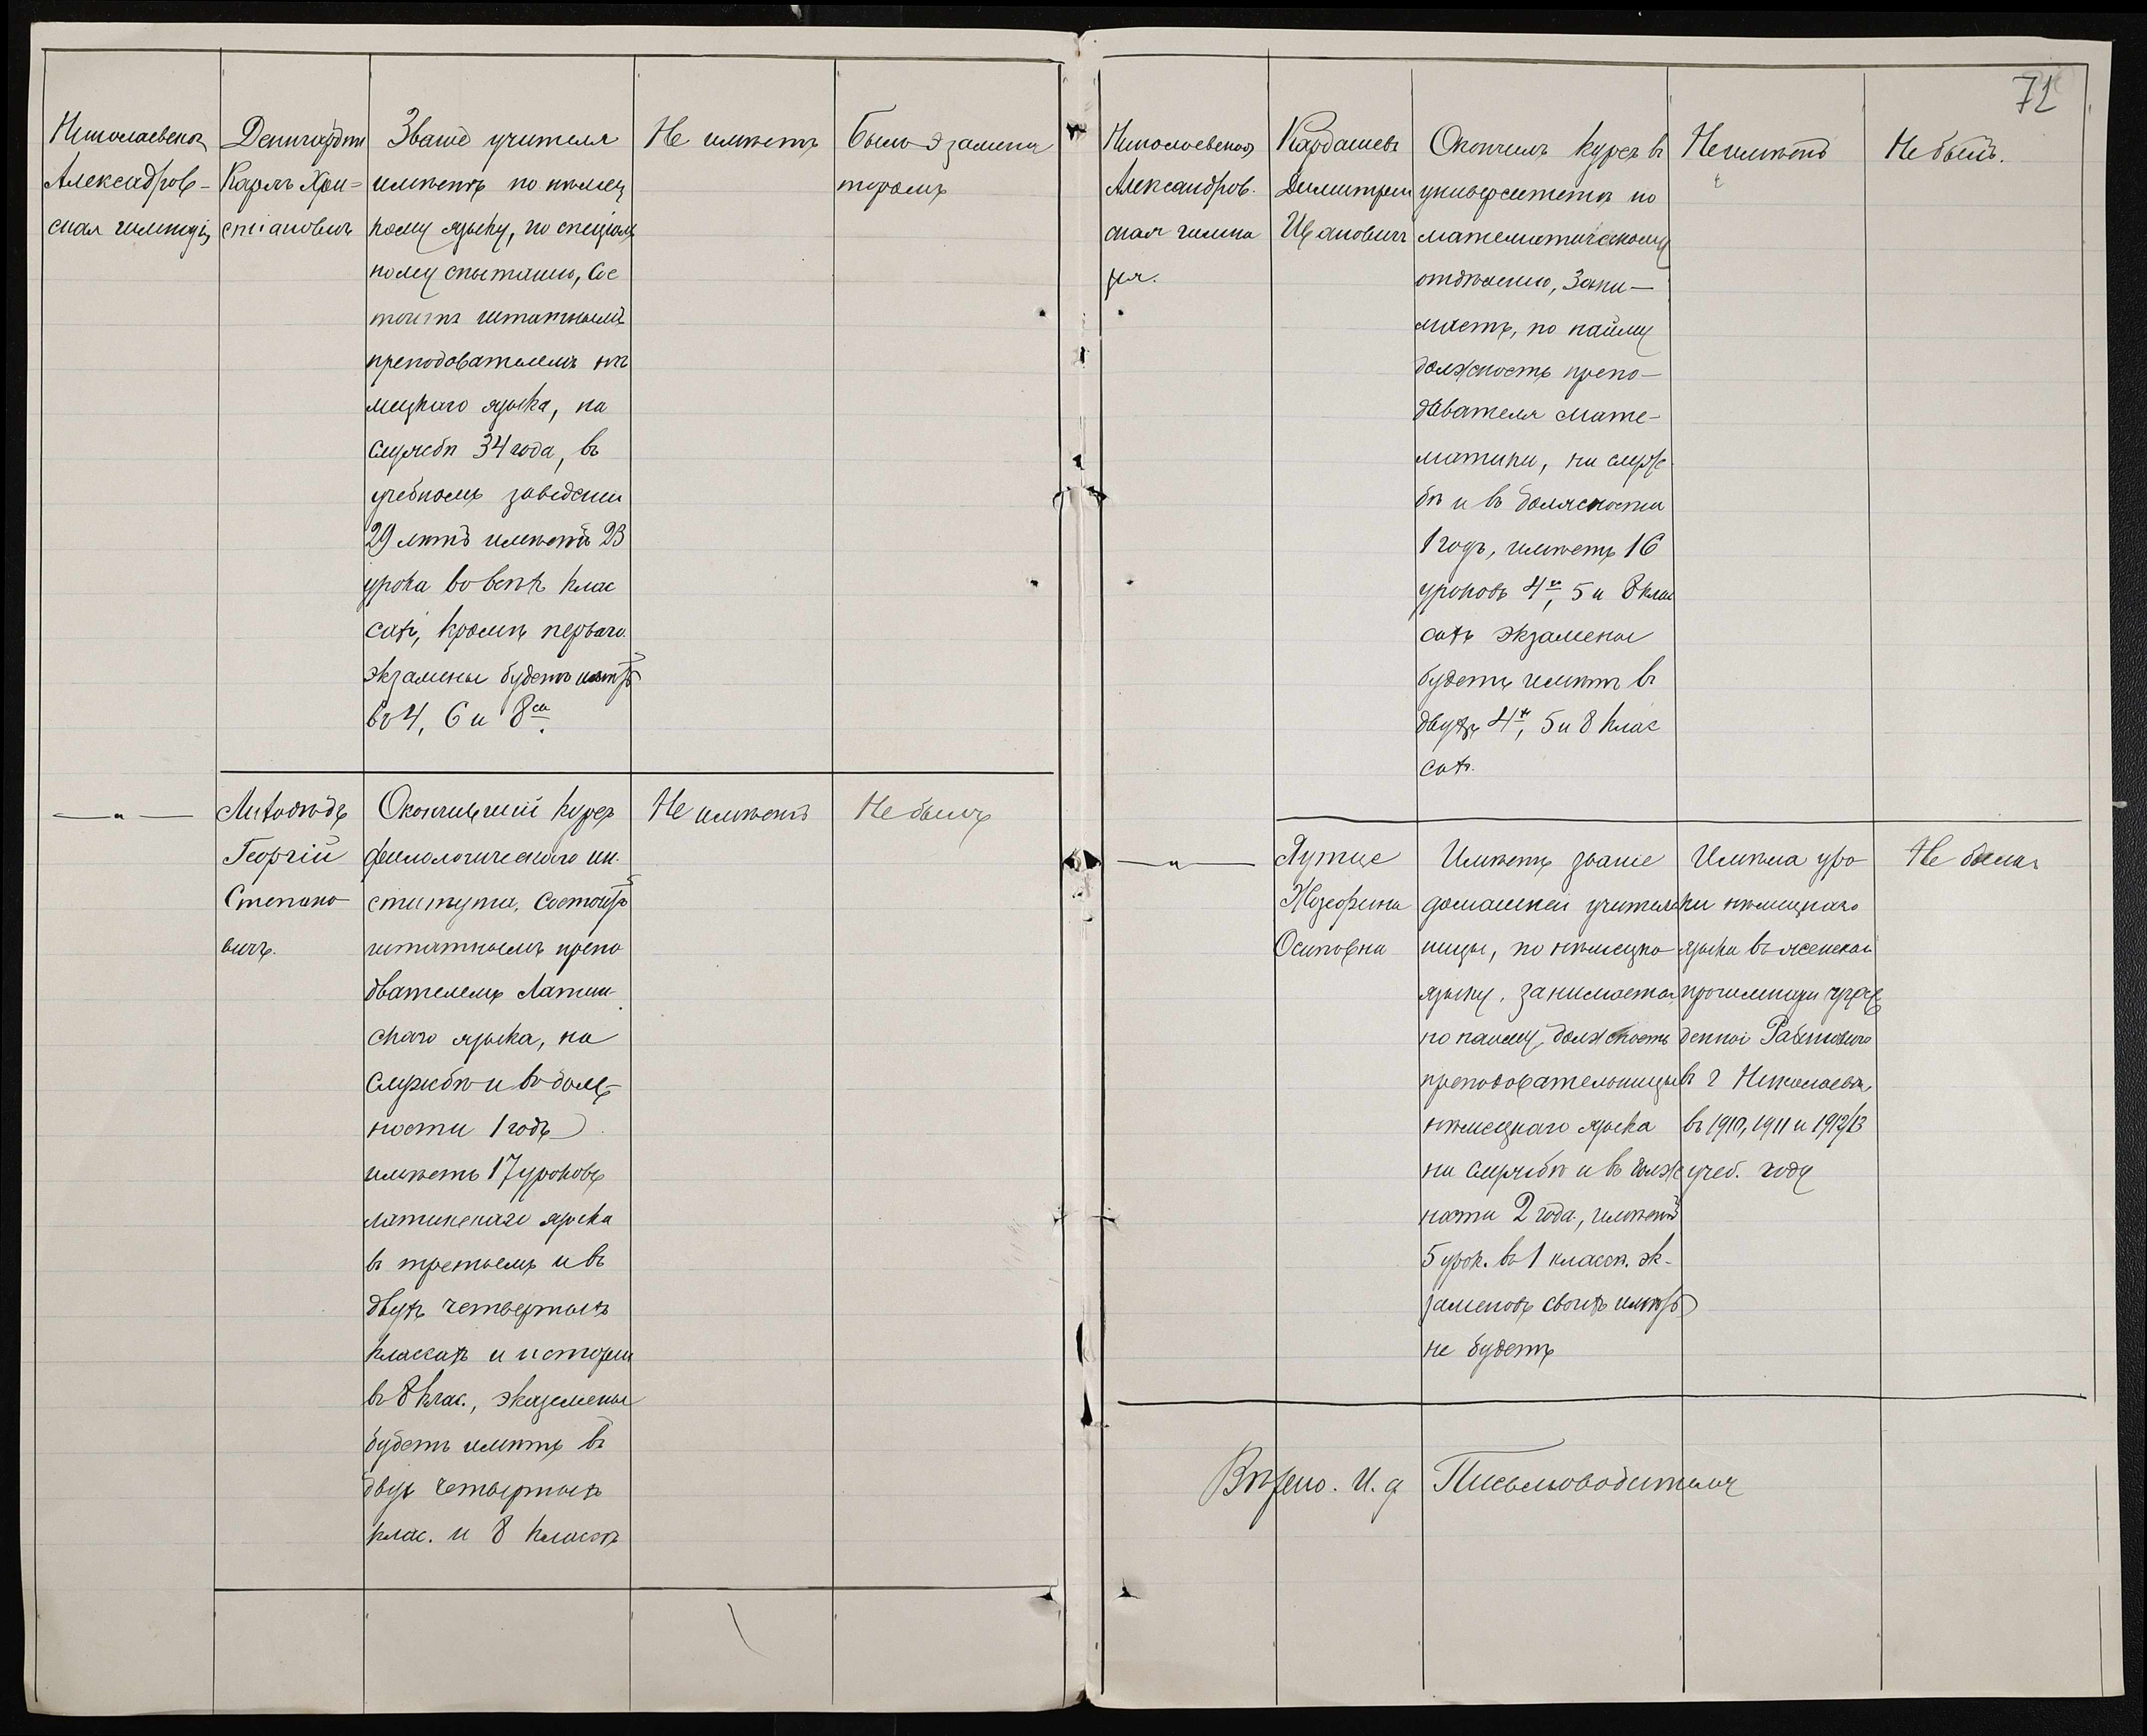 72
Николаевская
Александров-
ская гимназія
Денигардтъ
Карлъ Хри-
стіановичъ
Званіе учителя
имѣетъ по нѣмец
кому языку, по спеціаль
ному спытанію, Сос
тоитъ штатнымъ
преподователемъ нѣ
мецкаго языка, на
службѣ 34 года, въ
учебномъ заведеніи
29 лѣтъ имѣетъ 23
урока во всѣхъ клас
сахъ, кромѣ перваго.
Экзамены будетъ имѣть
въ 4, 6 и 8
Не имѣетъ
Былъ экзамена
торомъ
— " —
Георгій
Степано
вичъ.
Окончившій курсъ
филологическаго ин-
ститута, состоитъ
штатнымъ препо
двателемъ Латин-
скаго языка, на
службѣ и въ долж-
ности 1 годъ
имѣетъ 17 уроковъ
латинскаго языка
въ третьемъ и въ
двухъ четвертыхъ
класкахъ и исторіи
въ 8 клас., эказемены
будетъ имѣть въ
двухъ четвертыхъ
клас. и 8 классѣ
Не имѣетъ
Не былъ
Николаевская
Александров-
ская гимна
зія.
Кардашевъ
Димитрій
Ивановичъ
Окончилъ курсъ въ
университетѣ по
математическому
отдѣленію, Зани-
маетъ, по найму
должность препо-
давателя мате-
матики, на служ-
бѣ и въ должности
1 годъ, имѣетъ 16
уроковъ 4х, 5 и 8 клас
сахъ экзамены
будетъ имѣть въ
двухъ 4х, 5 и 8 клас
сахъ.
Не имѣетъ
Не былъ.
— " —
Жозефина
Осиповна
Имѣетъ званіе
домашней учитель
ницы, по нѣмецко
языку, занимаетъ
по найму, должность
преподовательницы
нѣмецкаго языка
на службѣ и въ долж
ности 2 года, имѣетъ
5 урок. въ 1 классѣ. эк-
заменовъ своихъ имѣть
не будетъ
Имѣла уро
ки нѣмецкаго
языка въ женской
прогимназіи учреж
денной Рабиновичъ
въ г Николаевѣ,
въ 1910, 1911 и 1912/13
учеб. году
Не была
Вѣрно. И. д Письмоводителя